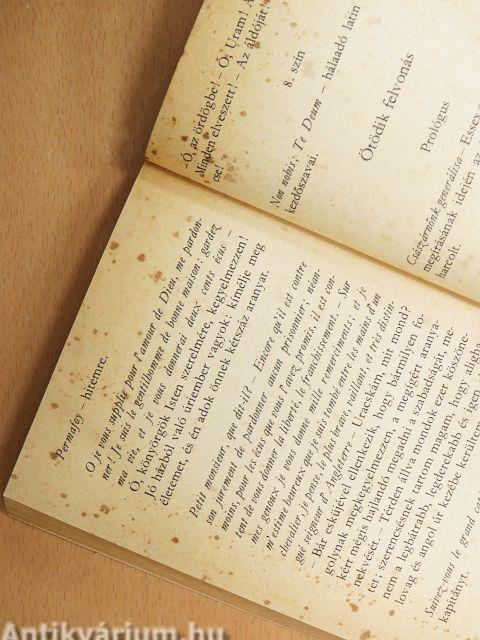 –Ó, az ördögbe! – Ó, Uram! A
Minden elveszett! – Az áldóját!
cse!
8. szín
Non nobis; Te Deum – hálaadó latin
kezdőszavai.
Ötödik felvonás
Prológus
Császárnőnk generálisa – Essex
megírásának idején az
harcolt.
Permafoy – hitemre.
O je vous supplie pour l'amour de Dieu, me pardon-
ner! Je suis le gentilhomme de bonne maison; gardez
ma vie, et je vous donnerai deux cents écus –
Ó, könyörgök Isten szerelmére, kegyelmezzen!
Jó házból való úriember vagyok; kímélje meg
életemet, és én adok önnek kétszáz aranyat.
Petit monsieur, que dit-il? – Encore qu'il est contre
son jurement de pardonner aucun prisonnier; néan-
moins, pour les écus que vous l'avez promis, il est con-
tent de vous donner la liberté, le franchissement. – Sur
mes genoux je vous donne mille remerciments; et je
m'estime heureux que je suis tombé entre les mains d'un
chevalier, je pense, le plus brave, vaillant, et très distin-
gué seigneur d'Angleterre – Uracskám, mit mond?
– Bár esküjével ellenkezik, hogy bármilyen fo-
golynak megkegyelmezzen, a megígért aranya-
kért mégis hajlandó megadni a szabadságát, me-
nekvését. – Térden állva mondok ezer köszöne-
tet; szerencsésnek tartom magam, hogy aligha
nem a legbátrabb, legderekabb és igen
lovag és angol úr kezébe kerültem
Suivez-vous le grand
kapitányt.
Antikvárium.hu